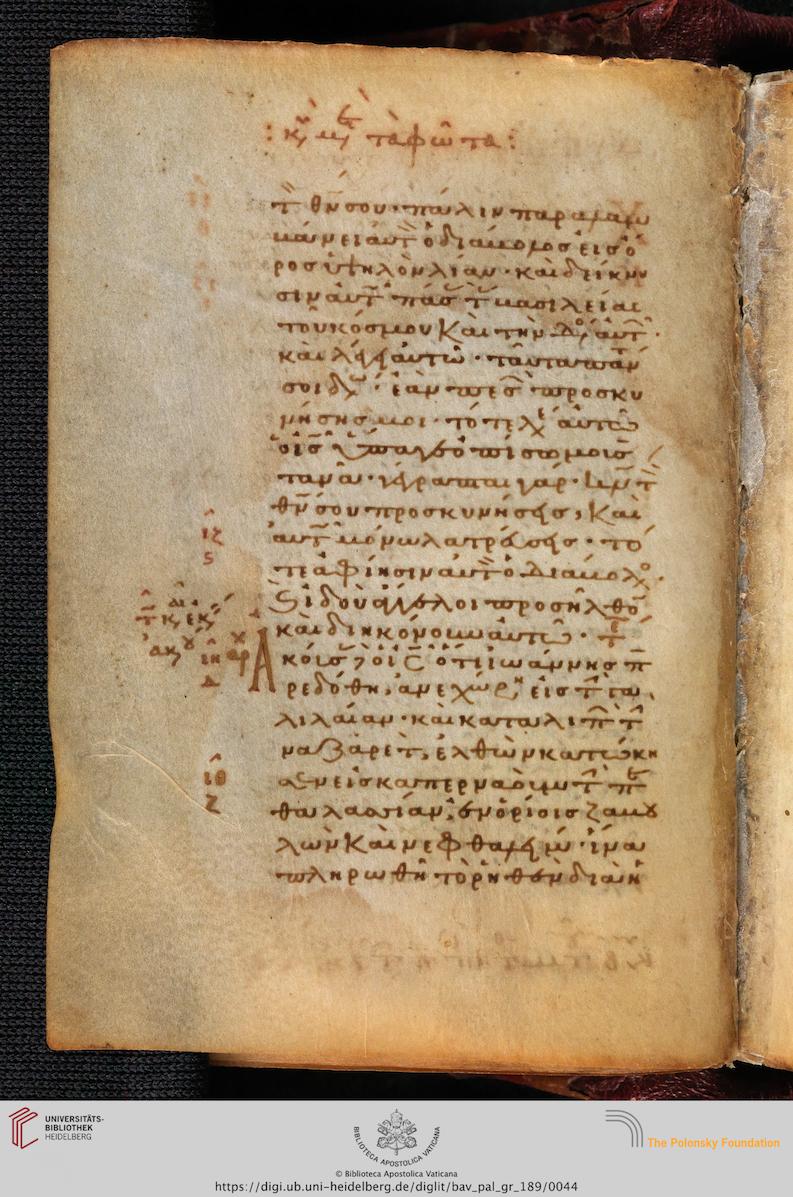 : κυ μτ τὰ φῶτα :
τ θν σου · πάλιν παραλαμ
βάνει αυτ ὁ διάβολος εἰς ὄ
ρος ὑψηλὸν λίαν · καὶ δείκνυ
σιν αυτ πάσ τ βασιλείας
τοῦ κόσμου καὶ την δο αυτ ·
καὶ λέγει αὐτῶ · ταῦτα πάν
σοι δω · ἐὰν πεσ προσκυ
νήσης μοι · τότε λε αυτῶ
ὁ ις ὕπαγε ὀπίσω μου σ
τανᾶ · γέγραπται γάρ · κν τ
θν σου προσκυνήσεις, καὶ
αυτ μόνω λατρεύσεις · τό
τε ἀφίησιν αυτ ὁ διάβολο ·
ιζ
ς
ϛ ἰδοὺ ἄγγελοι προσῆλθο
καὶ διηκόνουν αυτῶ · τε
ιη
δ
αρχ
Ἀκούσ δὲ ὁ ις ὅτι ἰωάννης π
ρεδόθη, ἀνεχώρη εἰς τ γα
λιλαίαν · καὶ καταλιπ τ
ναζαρὲτ, ἐλθὼν κατώκη
ιθ
ζ
σεν εἰς καπερναοὺμ τ π
θαλασσίαν, ἐν ὁρίοις ζαβου
λὼν καὶ νεφθαλείμ · ἵνα
πληρωθῆ τὸ ρηθὲν διὰ ἡ
UNIVERSITÄTS-
BIBLIOTHEK
HEIDELBERG
BIBLIOTECA APOSTOLICA VATICANA
The Polonsky Foundation
© Biblioteca Apostolica Vaticana
https://digi.ub.uni-heidelberg.de/diglit/bav_pal_gr_189/0044